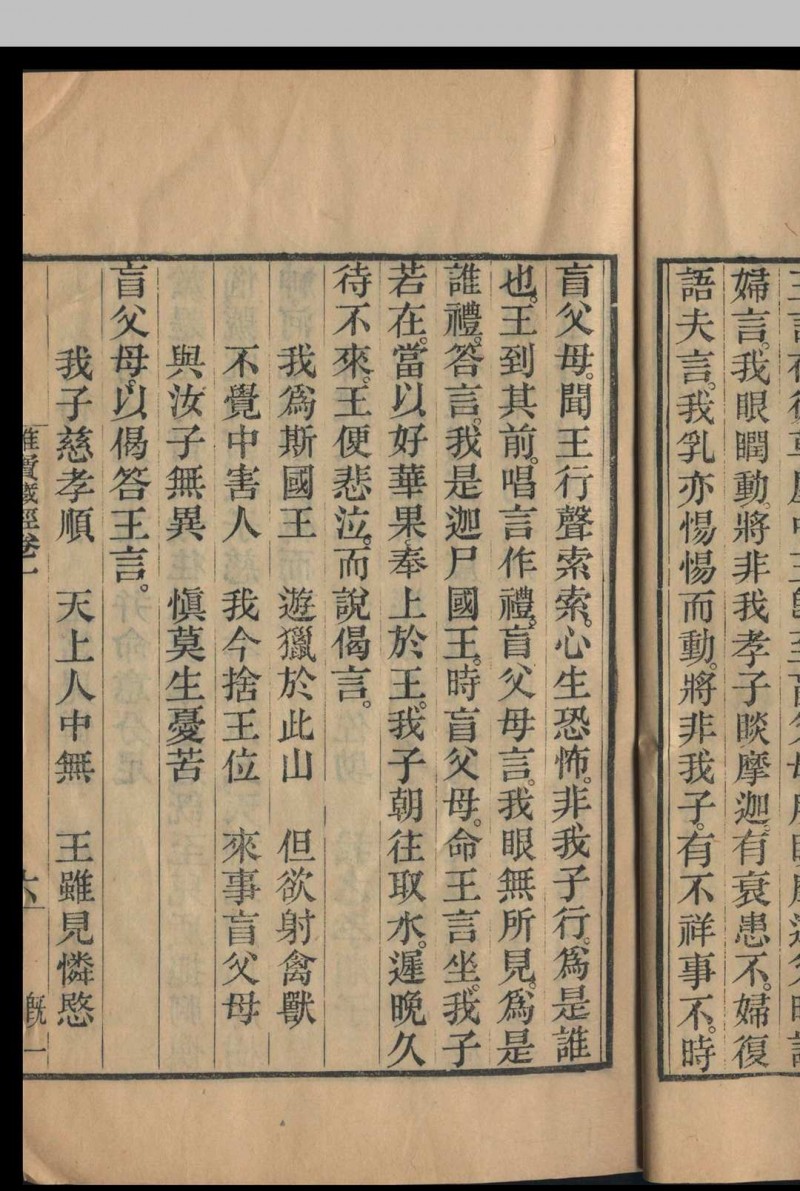 婦言。我眼瞤動。將非我孝子睒摩迦。有衰患不。婦復
語夫言。我乳亦惕惕而動。將非我子。有不祥事不。時
盲父母。聞王行聲索索。心生恐怖。非我子行。爲是誰
也。王到其前。唱言作禮。盲父母言。我眼無所見。爲是
誰禮。答言。我是迦尸國王。時盲父母。命王言坐。我子
若在。當以好華果奉上於王。我子朝往取水。遲晚久
待不來。王便悲泣。而說偈言。
我爲斯國王 遊獵於此山 但欲射禽獸
不覺中害人 我今捨王位 來事盲父母
與汝子無異 愼莫生憂苦
盲父母。以偈答王言。
我子慈孝順 天上人中無 王雖見憐愍
雜寶藏經卷一 六 慨一